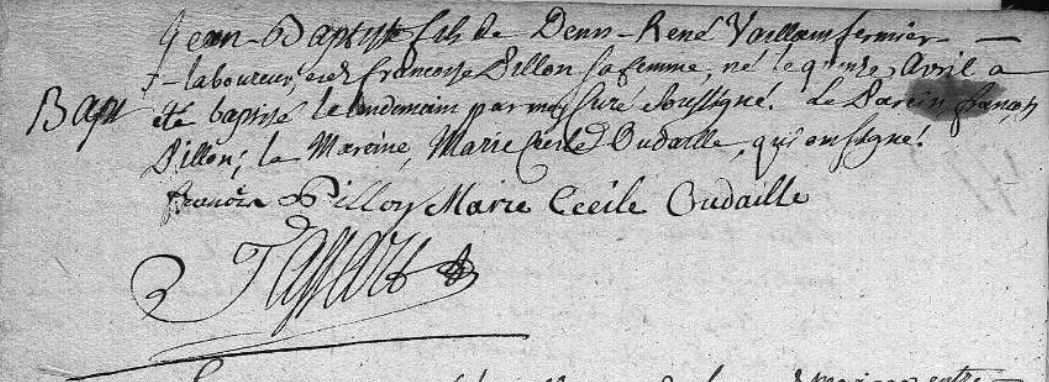 Jean-Baptiste fils de Denis-René Vaillant fermier
laboureur, et de francoise Pillon sa femme, né le quinze Avril a
Bapt été baptisé le lendemain par moy Curé soussigné. Le Parein, françois
Pillon; la Mareine, Marie Cécile Oudaille, qui ont signé.
francois Pillon Marie Cécile Oudaille